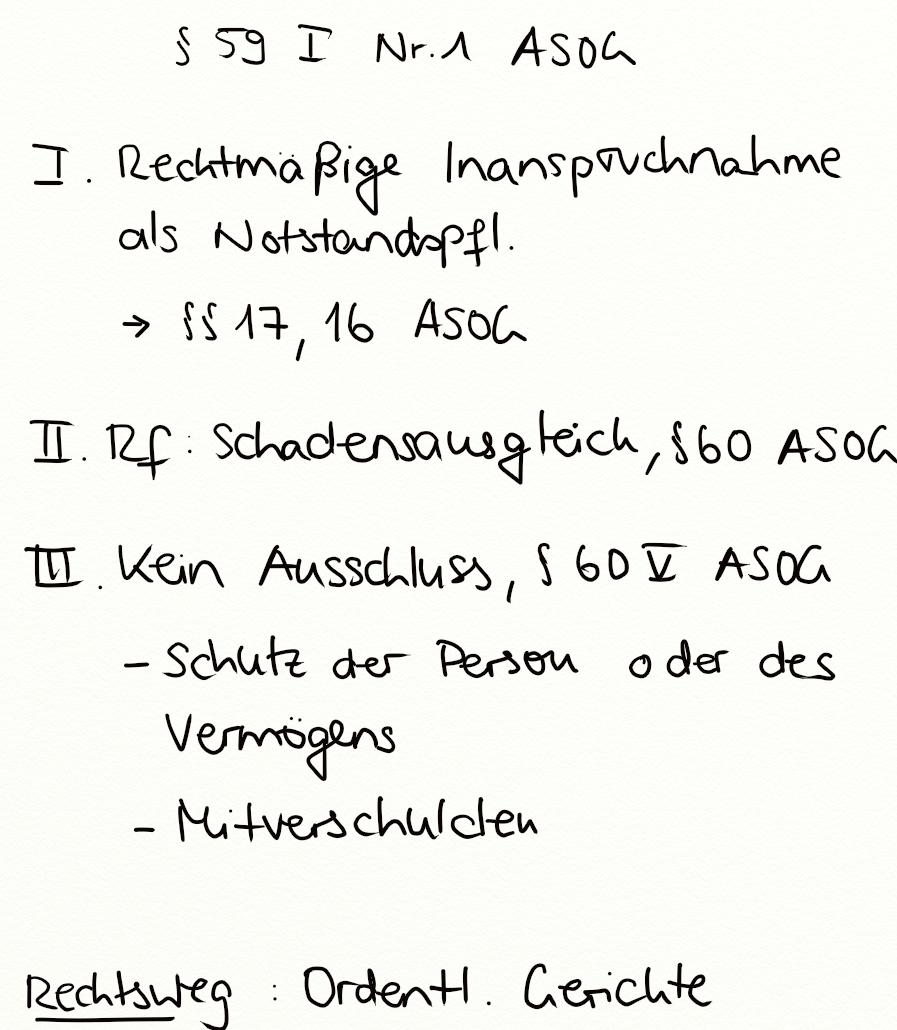 § 59 I Nr. 1 ASOG
I. Rechtmäßige Inanspruchnahme
als Notstandspfl.
→ §§ 17, 16 ASOG
II. Rf: Schadensausgleich, § 60 ASOG
III. Kein Ausschluss, § 60 V ASOG
- Schutz der Person oder des
Vermögens
- Mitverschulden
Rechtsweg: Ordentl. Gerichte